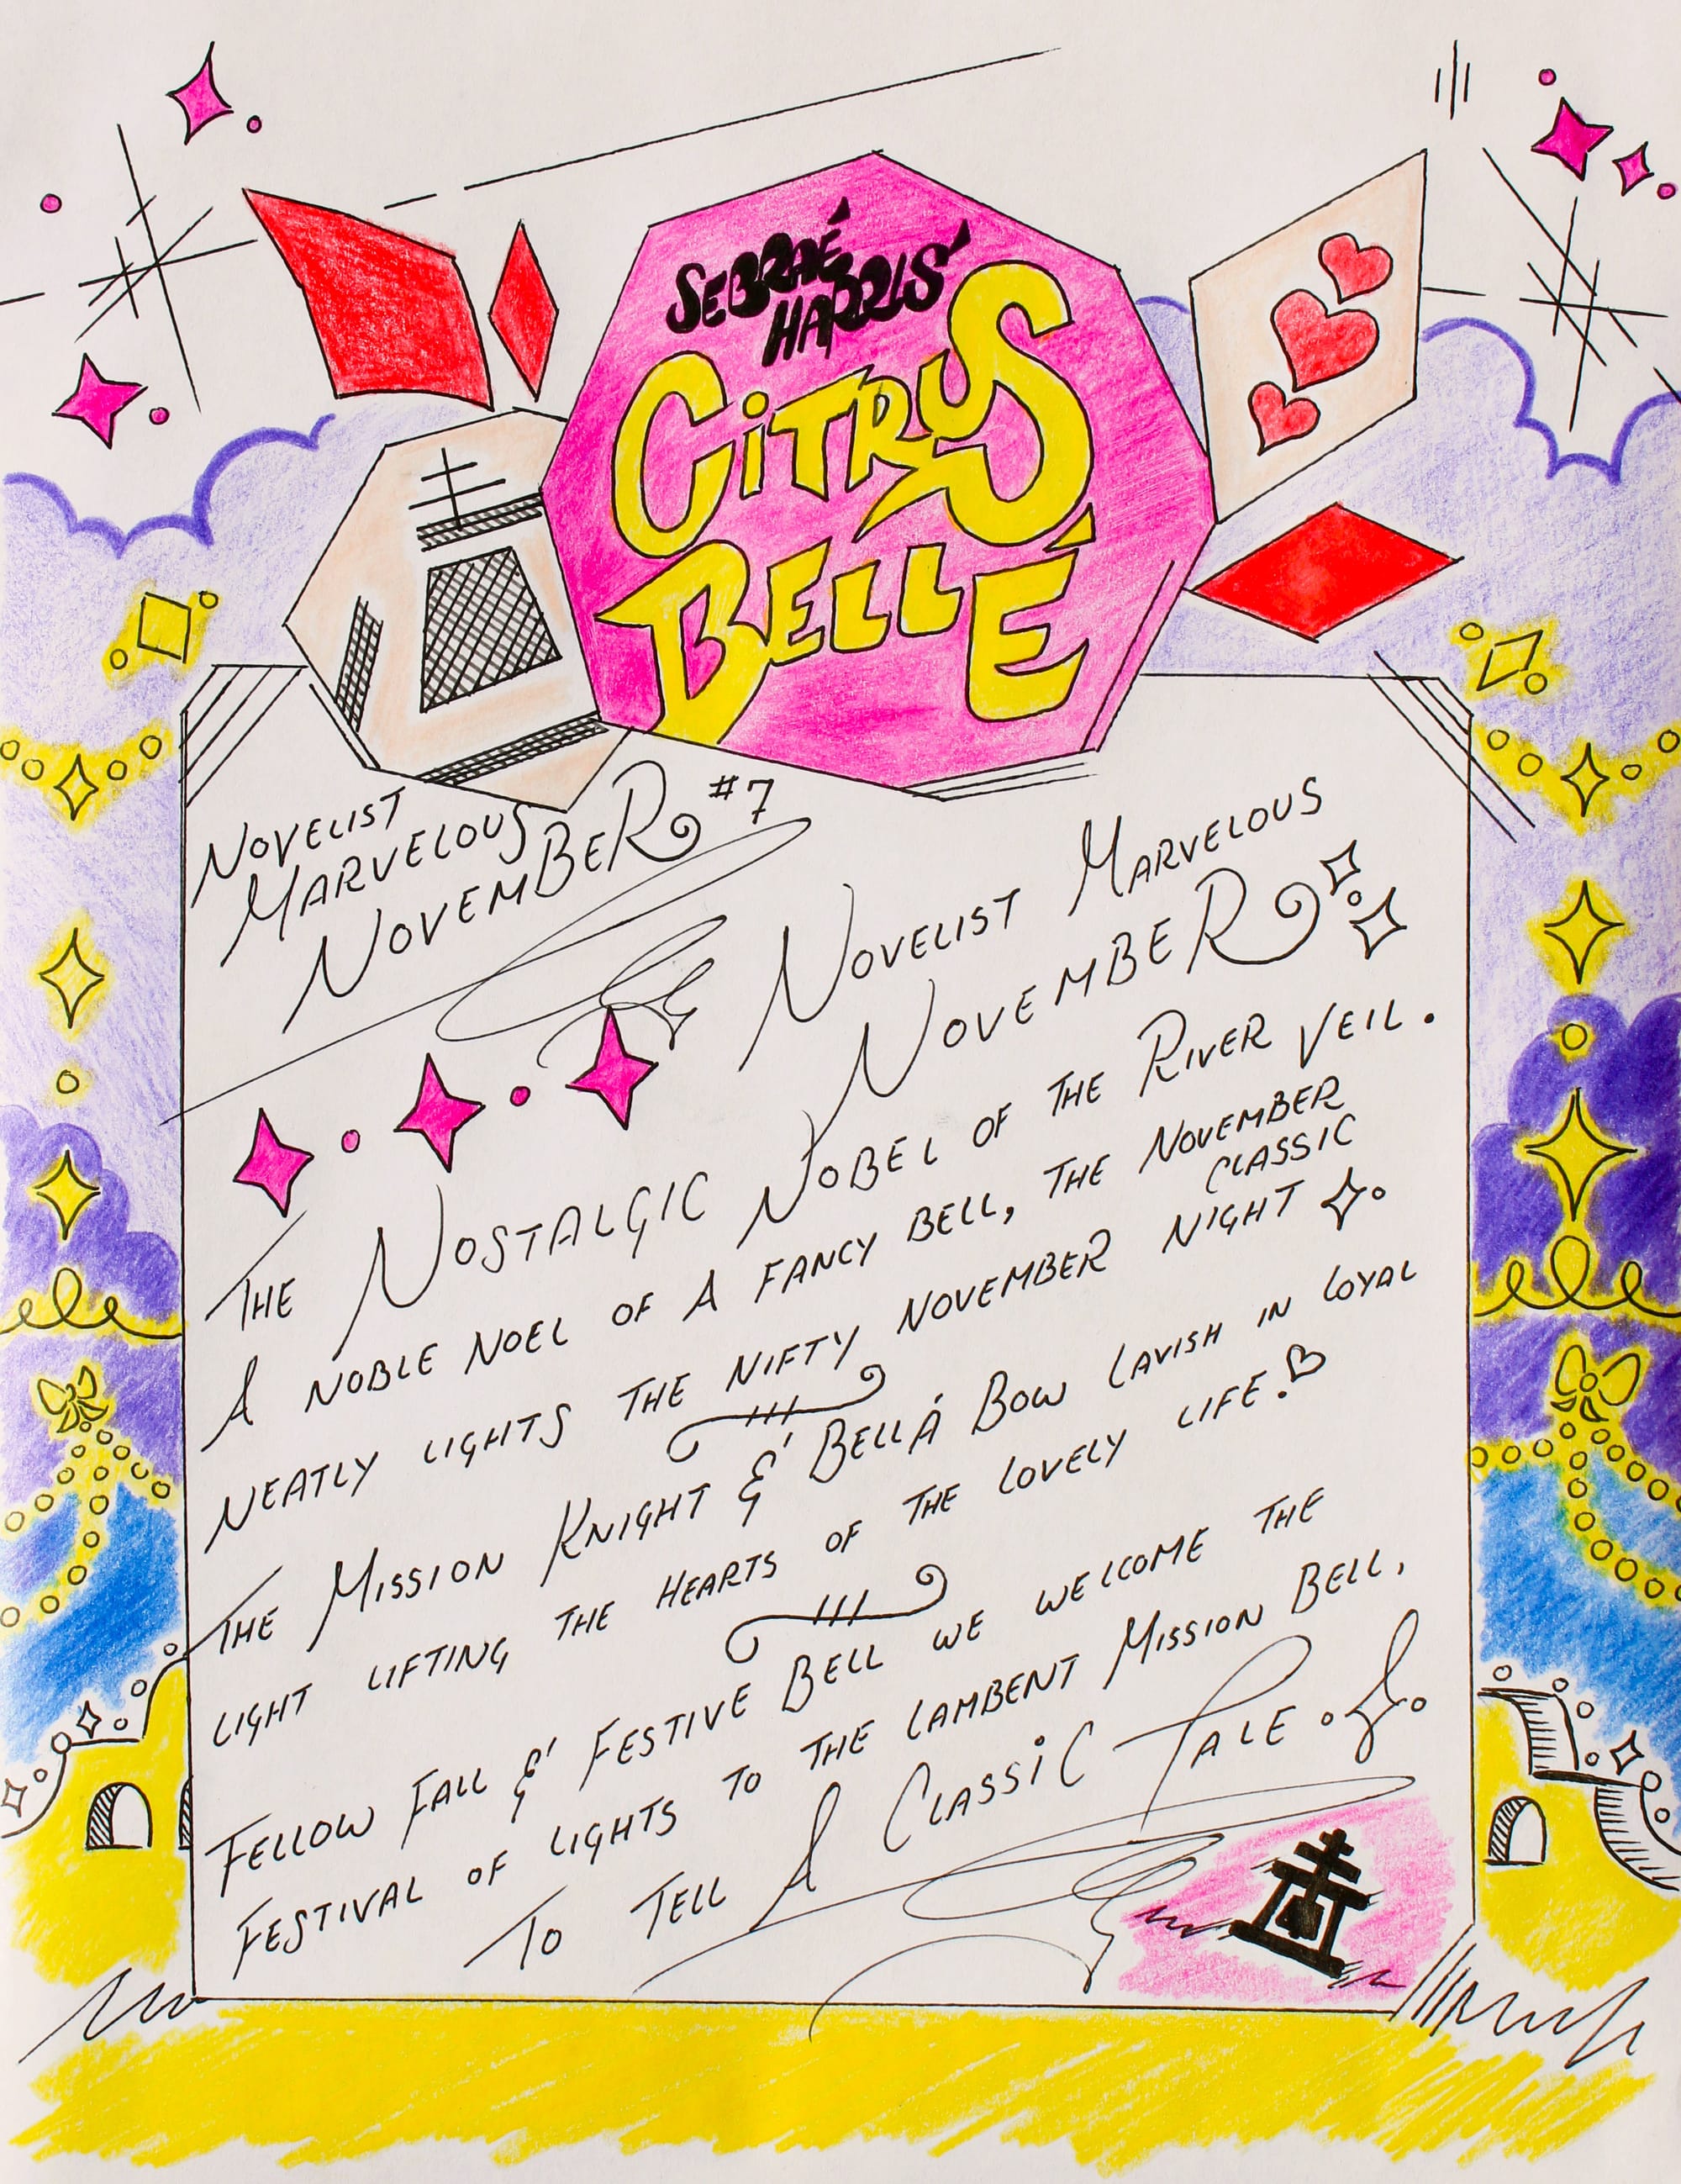 SEBRAÉ
HARRIS'
CiTRUS
BELLÉ
NOVELIST
MARVELOUS
NOVEMBER #7
NOVELIST MARVELOUS
NOVEMBER
THE NOSTALGIC NOBEL OF THE RIVER VEIL.
A NOBLE NOEL OF A FANCY BELL, THE NOVEMBER
CLASSIC
NEATLY LIGHTS THE NIFTY NOVEMBER NIGHT
THE MISSION KNIGHT &' BELLÁ BOW LAVISH IN LOYAL
LIGHT LIFTING THE HEARTS OF THE LOVELY LIFE.
FELLOW FALL &' FESTIVE BELL WE WELCOME THE
FESTIVAL OF LIGHTS TO THE LAMBENT MISSION BELL,
TO TELL A CLASSIC TALE